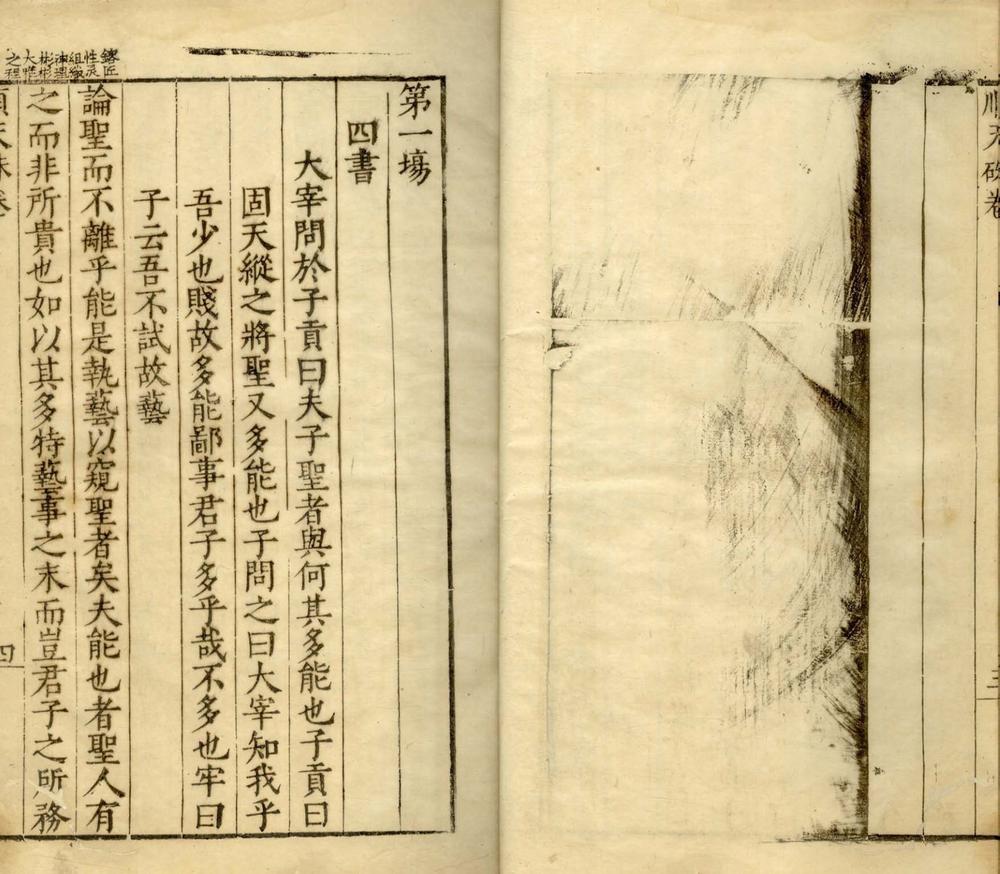 順天硃卷
三
第一場
四書
大宰問於子貢曰夫子聖者與何其多能也子貢曰
固天縱之將聖又多能也子問之曰大宰知我乎
吾少也賤故多能鄙事君子多乎哉不多也牢曰
子云吾不試故藝
論聖而不離乎能是執藝以窺聖者矣夫能也者聖人有
之而非所貴也如以其多特藝事之末而豈君子之所務
順天硃卷
四
匠
性灵
組
彬彬
大
之程